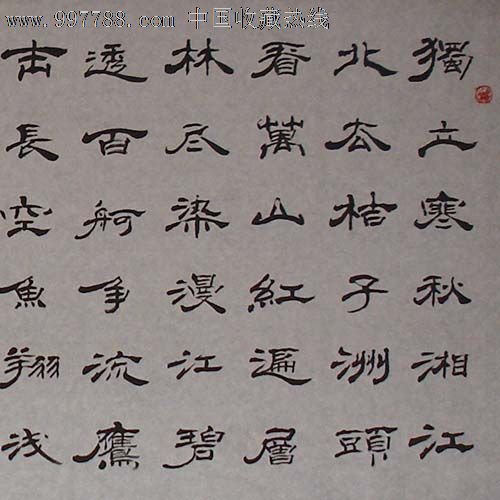 www.997788.com 中国收藏热线
獨立寒秋湘江
北去桔子洲頭
看萬山紅遍層
林尽染漫江碧
透百舸争流鷹
击長空魚翔浅